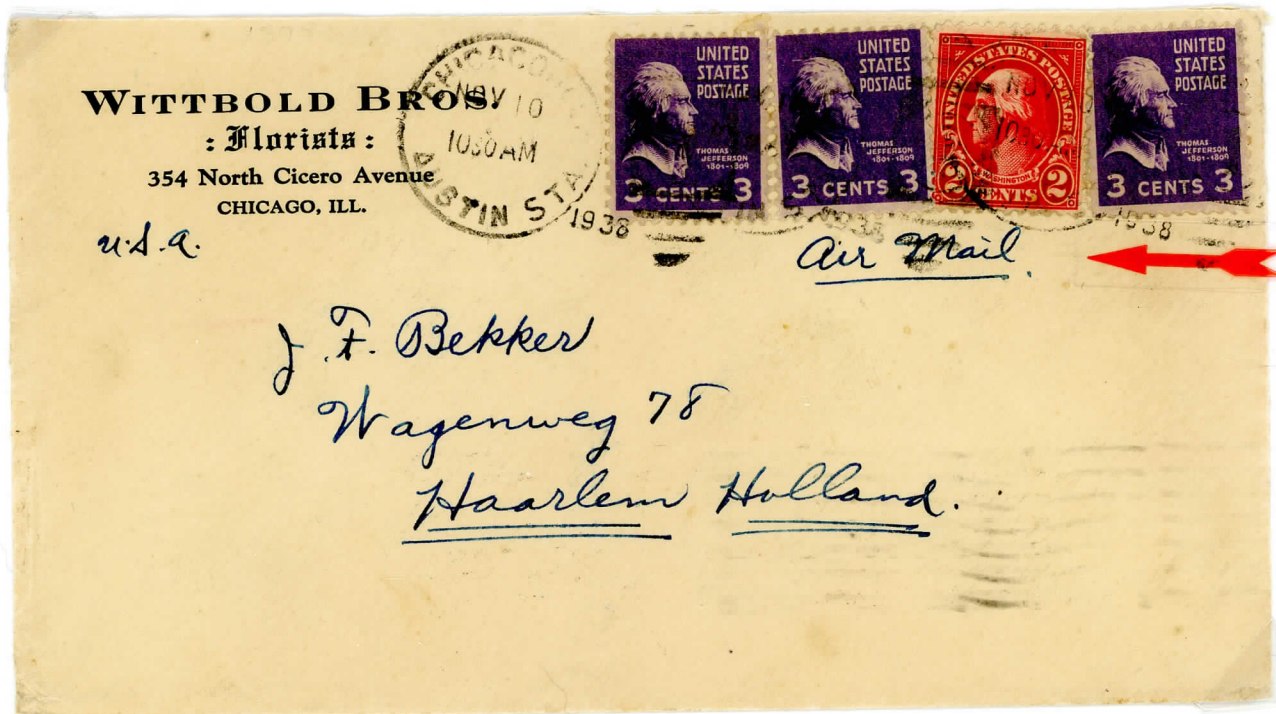 WITTBOLD BROS.
: Florists :
354 North Cicero Avenue
CHICAGO, ILL.
U.S.A.
CHICAGO
NOV 10
1030 AM
AUSTIN STA.
1938
UNITED
STATES
POSTAGE
THOMAS
JEFFERSON
1801-1809
3 CENTS 3
UNITED
STATES
POSTAGE
THOMAS
JEFFERSON
1801-1809
3 CENTS 3
UNITED STATES POSTAGE
WASHINGTON
2 CENTS 2
NOV
1938
UNITED
STATES
POSTAGE
THOMAS
JEFFERSON
1801-1809
3 CENTS 3
1938
Air Mail
J. F. Bekker
Wagenweg 78
Haarlem Holland.